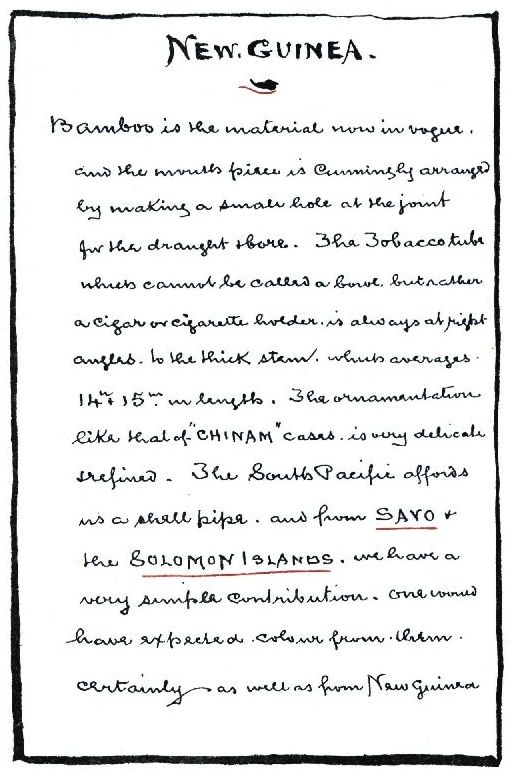 NEW. GUINEA.
Bamboo is the material now in vogue.
and the mouth piece is Cunningly arranged
by making a small hole at the joint
for the draught & bore. The Tobacco tube
which cannot be called a bowl, but rather
a cigar or cigarette holder. is always at right
angles. to the thick stem. which averages.
14 in & 15 in in length. The ornamentation
like that of "CHINAM" cases. is very delicate
& refined. The South Pacific affords
us a shell pipe. and from SAVO &
the SOLOMON ISLANDS. we have a
very simple contribution. one would
have expected. colour from. them.
certainly as well as from New Guinea